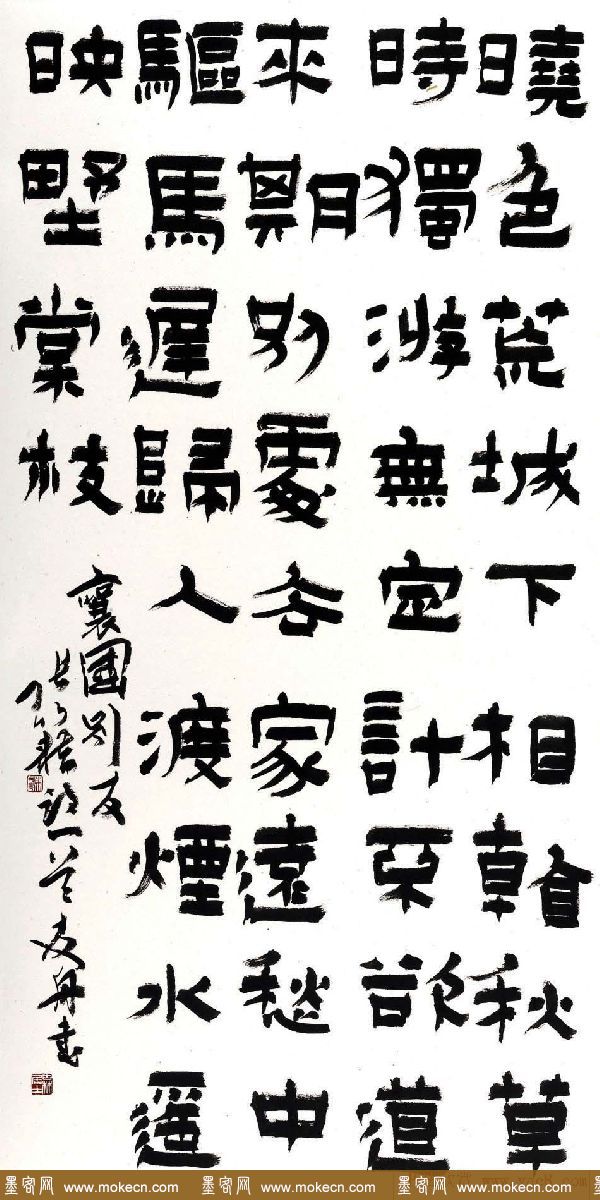 曉色荒城下相看秋草
時獨游無定計不欲道
來期別處去家遠愁中
驅馬遲歸人渡煙水遙
映野棠枝
襄國別友
張籍詩一首 舟書
墨客网 www.mokecn.com 墨客网 www.mokecn.com 墨客网 www.mokecn.com